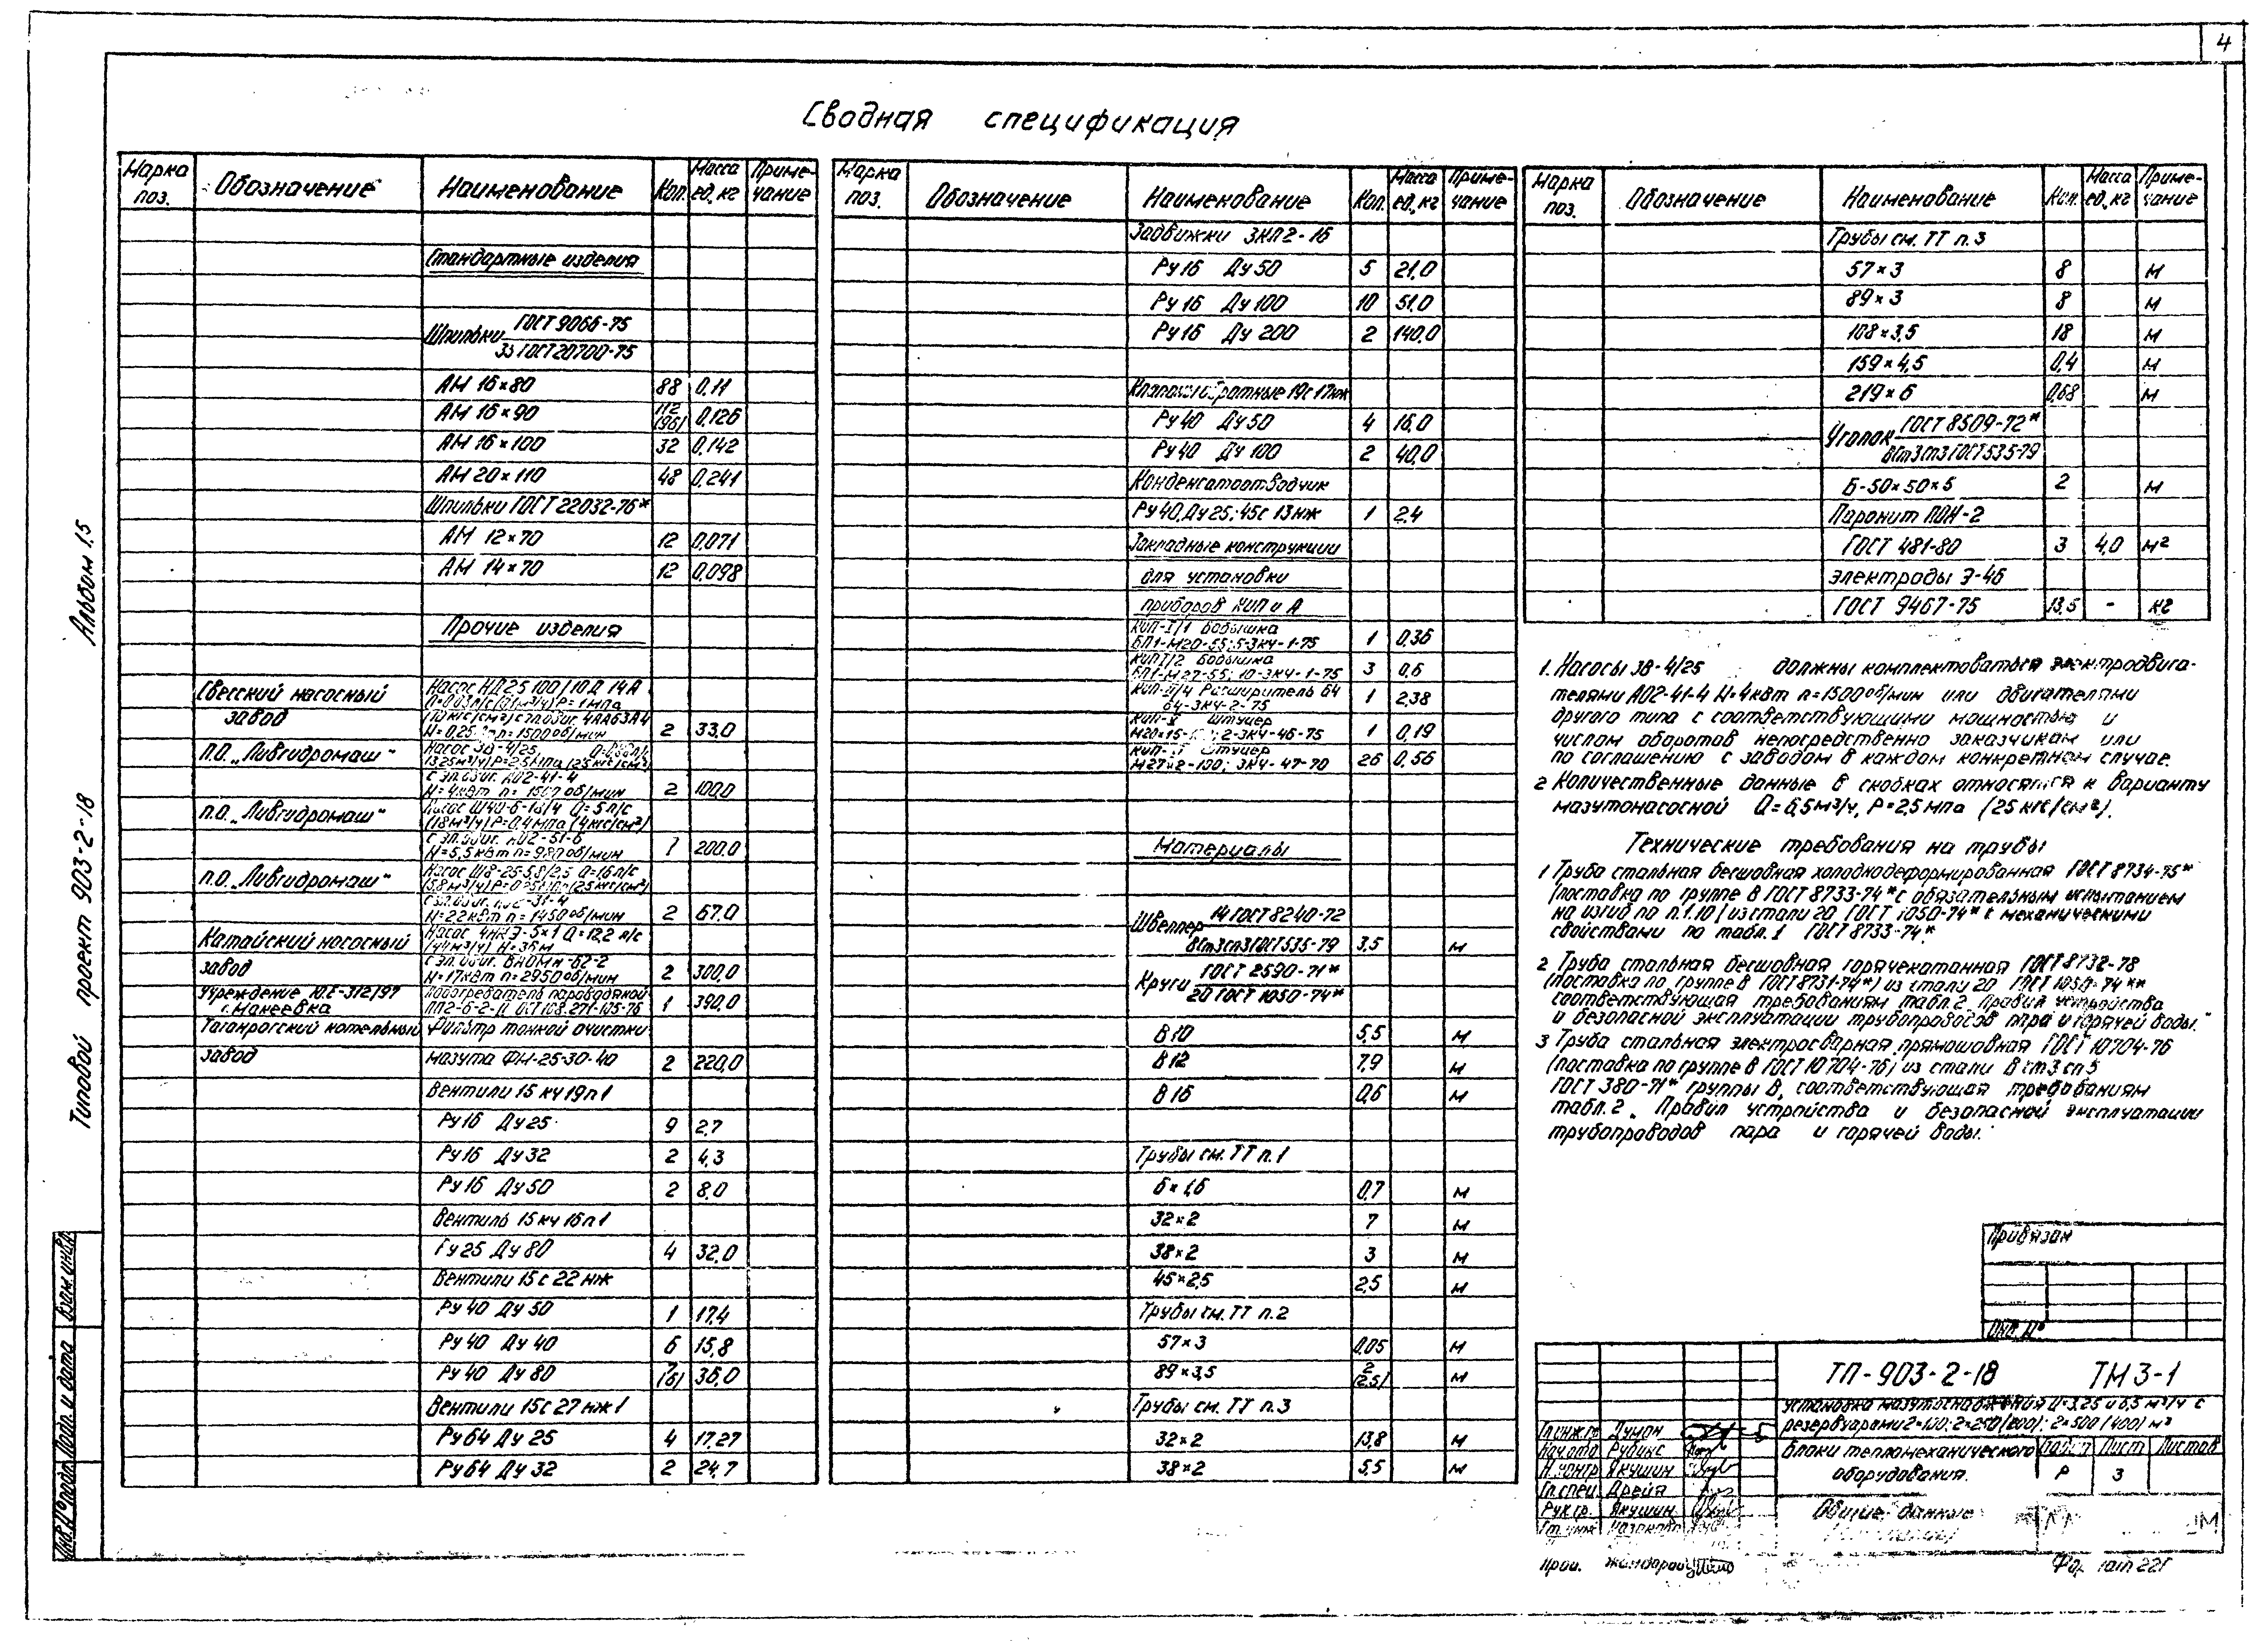 4
Сводная спецификация
Марка поз. Обозначение Наименование Кол. Масса ед., кг Примечание
Стандартные изделия
Шпильки ГОСТ 9066-75
35 ГОСТ 20700-75
АМ 16×80 88 0,11
АМ 16×90 112 (96) 0,126
АМ 16×100 32 0,142
АМ 20×110 48 0,241
Шпильки ГОСТ 22032-76*
АМ 12×70 12 0,071
АМ 14×70 12 0,098
Прочие изделия
Свесский насосный Насос НД 25 100/10 Д 14А
завод
(10 кгс/см²) с эл.двиг. 4АА63А4
N=0,25 n=1500 об/мин 2 33,0
п.о. „Ливгидромаш" Насос 3В-4/25,
(3,25м³/ч) Р=2,5мпа (25 кгс/см²)
с эл.двиг. А02-41-4
N=4квт n=1500 об/мин 2 100,0
п.о. „Ливгидромаш" Насос Ш40-6-18/4 Q=5л/с
(18м³/ч) Р=0,4мпа (4кгс/см²)
с эл.двиг. А02-51-6
N=5,5квт n=980 об/мин 1 200,0
п.о. „Ливгидромаш" Насос Ш8-25-5,8/2,5 Q=1,6л/с
(5,8м³/ч) Р=0,25мпа (2,5кгс/см²)
N=2,2квт n=1450 об/мин 2 67,0
Катайский насосный Насос 4НКЭ-5×1 Q=12,2 л/с
(44м³/ч) Н=36м
завод
N=17квт n=2950 об/мин 2 300,0
Учреждение ЮЕ-312/97 подогреватель пароводяной
г. Макеевка ПП2-6-2-II ОСТ 108.271-105-76 1 390,0
Таганрогский котельный Фильтр тонкой очистки
завод мазута ФМ-25-30-40 2 220,0
Вентили 15кч19п1
Ру16 Ду25 9 2,7
Ру16 Ду32 2 4,3
Ру16 Ду50 2 8,0
Вентиль 15кч16п1
Ру25 Ду80 4 32,0
Вентили 15с22нж
Ру40 Ду50 1 17,4
Ру40 Ду40 6 15,8
Ру40 Ду80 7 (6) 36,0
Вентили 15с27нж1
Ру64 Ду25 4 17,27
Ру64 Ду32 2 24,7
Марка поз. Обозначение Наименование Кол. Масса ед., кг Примечание
Задвижки ЗКЛ2-16
Ру16 Ду50 5 21,0
Ру16 Ду100 10 51,0
Ру16 Ду200 2 140,0
Клапаны обратные 19с17нж
Ру40 Ду50 4 16,0
Ру40 Ду100 2 40,0
Конденсатоотводчик
Ру40, Ду25; 45с13нж 1 2,4
Закладные конструкции
для установки
приборов КИП и А
КИП-I/1 Бобышка
БП1-М20-55; 5-ЗК4-1-75 1 0,36
КИП I/2 Бобышка
БП1-М27-55; 10-ЗК4-1-75 3 0,6
КИП-II/4 Расширитель 64
64-ЗК4-2-75 1 2,38
Штуцер
2-ЗК4-46-75 1 0,19
Штуцер
М27×2-100; ЗК4-47-70 26 0,56
Материалы
Швеллер 14 ГОСТ 8240-72
ВСт3сп3 ГОСТ 535-79 3,5 м
Круги ГОСТ 2590-71*
20 ГОСТ 1050-74*
В10 5,5 м
В12 7,9 м
В16 0,6 м
Трубы см. ТТ п.1
6×1,6 0,7 м
32×2 7 м
38×2 3 м
45×2,5 2,5 м
Трубы см. ТТ п.2
57×3 0,05 м
89×3,5 2 (2,5) м
Трубы см. ТТ п.3
32×2 13,8 м
38×2 5,5 м
Марка поз. Обозначение Наименование Кол. Масса ед., кг Примечание
Трубы см. ТТ п.3
57×3 8 м
89×3 8 м
108×3,5 18 м
159×4,5 0,4 м
219×6 0,68 м
Уголок ГОСТ 8509-72*
ВСт3сп3 ГОСТ 535-79
Б-50×50×5 2 м
Паронит ПОН-2
ГОСТ 481-80 3 4,0 м²
Электроды Э-46
ГОСТ 9467-75 13,5 - кг
1. Насосы 3В-4/25 должны комплектоваться электродвига-
телями А02-41-4 N=4квт n=1500 об/мин или двигателями
другого типа с соответствующими мощностью и
числом оборотов непосредственно заказчикам или
по соглашению с заводом в каждом конкретном случае.
2 Количественные данные в скобках относятся к варианту
мазутонасосной Q=6,5м³/ч, Р=2,5мпа (25 кгс/см²).
Технические требования на трубы
1 Труба стальная бесшовная холоднодеформированная ГОСТ 8734-75*
(поставка по группе В ГОСТ 8733-74* с обязательным испытанием
на изгиб по п.1.10) из стали 20 ГОСТ 1050-74* с механическими
свойствами по табл.1 ГОСТ 8733-74*.
2 Труба стальная бесшовная горячекатанная ГОСТ 8732-78
(поставка по группе В ГОСТ 8731-74*) из стали 20 ГОСТ 1050-74**
соответствующая требованиям табл.2 „Правил устройства
и безопасной эксплуатации трубопроводов пара и горячей воды."
3 Труба стальная электросварная прямошовная ГОСТ 10704-76
(поставка по группе В ГОСТ 10704-76) из стали В ст3 сп5
ГОСТ 380-71* группы В, соответствующая требованиям
табл.2 „Правил устройства и безопасной эксплуатации
трубопроводов пара и горячей воды."
Альбом 1.5
Типовой проект 903-2-18
Взам.инв.№
Подп. и дата
Инв.№ подл.
Привязан
Инв.№
ТП-903-2-18 ТМ3-1
Установка мазутоснабжения Q=3,25 и 6,5 м³/ч с
резервуарами 2×100; 2×250 (200); 2×500 (400) м³
Гл.инж.пр. Дунан
Нач.отд. Рубикс
Н.контр. Якушин
Гл.спец. Дрейя
Рук.гр. Якушин
Ст.инж. Казакова
Блоки тепломеханического
оборудования.
Лист Листов
Р 3
Общие данные
Формат 22Г